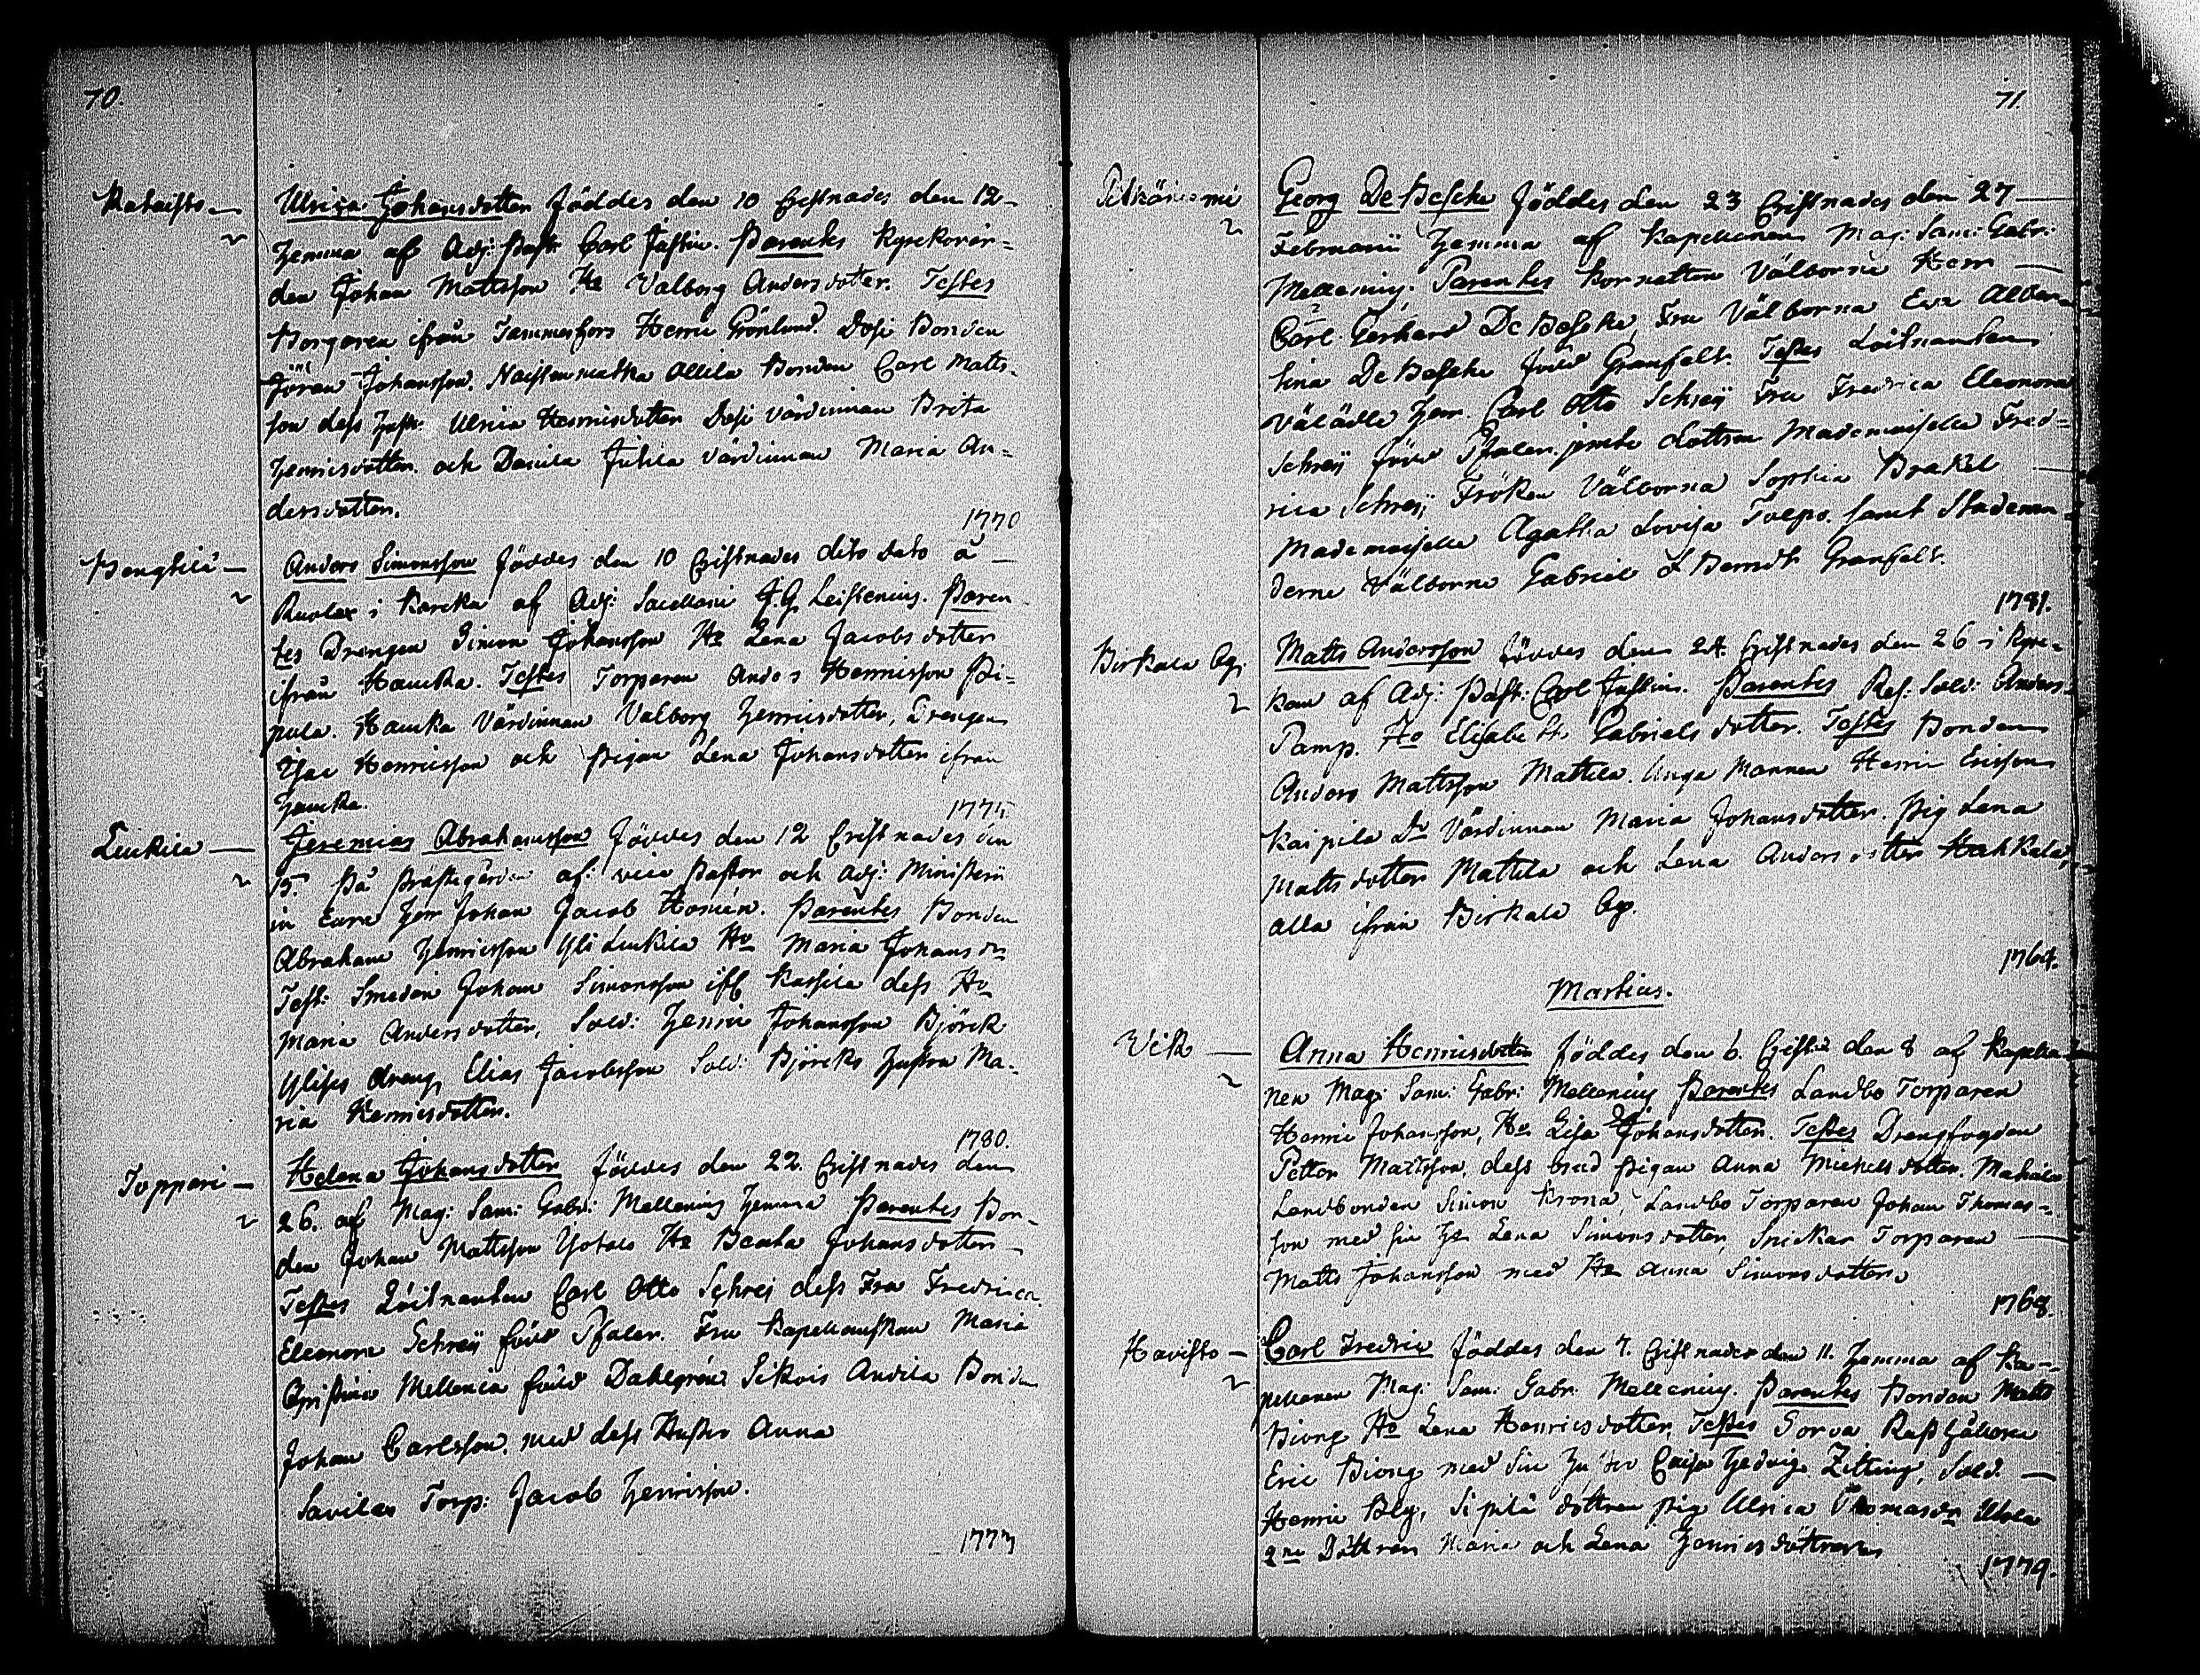 70.
Kataisto
Ulrica Johansdotter föddes den 10 Cristnades den 12
hemma af Adj: Past: Carl Justin. Parentes Kyrkovär=
den Johan Mattsson Ho Valborg Andersdoter. Testes
Borgaren ifrån Tammerfors Henric Grönlund. Bonden
Jöran Johansson. Naistenmatka Ollila Bonden Carl Matts=
son dess Hust: Ulrica Henricsdotter värdinnan Brita
Henricsdotter. och Juhila värdinnan Maria An=
dersdotter.
1770
Anders Simonsson föddes den 10 Cristnades dito dato å
i af Adj: J. G. Leistenius. Paren
tes Drengen Simon Johansson Ho Lena Jacobsdotter
ifrån Haucka. Testes Torparen Anders Henricsson Pi=
pula. Haucka Värdinnan Valborg Henricsdotter, Drengen
Isac Henricsson och pigan Lena Johansdotter ifrån
Haucka.
1775
Leukila
Jeremias Abrahamsson föddes den 12 Cristnades den
15. På Prästegården af vice Pastor och Adj: Ministerii
in Eura Herr Johan Jacob Homén. Parentes Bonden
Abraham Henricsson Yli Leukila Ho Maria Johansdr
Test: Smeden Johan Simonsson dess Ho
Maria Andersdotter, Sold: Henric Johansson Björck
dreng Elias Jacobsson Sold: Björcks hustru Ma=
ria Henricsdotter.
1780.
Toppari
Helena Johansdotter föddes den 22. Cristnades den
26. af Mag: Sam: Gabr: Mellenius hemma Parentes Bon=
den Johan Mattsson Ho Beata Johansdotter
Testes Löitnanten Carl Otto Schreij dess Fru Fredrica
Eleonora Schreij född Pfaler. Fru Kapellanskan Maria
Christina Mellenia född Dahlgrén. Andila Bonden
Johan Carlsson. med dess Hustru Anna
Savilax Torp: Jacob Henricsson.
1773
71.
Pitkäniemi
Georg De Besche föddes den 23 Cristnades den 27
Februarii hemma af Kapellanen Mag: Sam: Gabr:
Mellenius. Parentes Kornetten Välborne Herr
Carl Gerhard De Besche, Fru Välborna Eva Alber
tina De Besche född Granfelt. Testes Löitnanten
Välädle Herr Carl Otto Schreij Fru Fredrica Eleonora
Schreij född Pfaler. jemte dottren Mademoiselle Fred=
rica Schreij, Fröken Välborna Sophia Brakel
Mademoiselle Agatha Lovisa Tolpo. samt Studen
derne Välborne Gabriel & Berndt Granfelt.
1781.
Birkala by
Matts Andersson föddes den 24. Cristnades den 26 i Kyr=
kan af Adj: Past: Carl Justin. Parentes Res: Sold: Anders
Pamp. Ho Elisabeth Gabrielsdotter. Testes Bonden
Anders Mattsson Mattila. Unga Mannen Henric Ericsson
Kaipila Do Värdinnan Maria Johansdotter. Pig Lena
Mattsdotter Mattila och Lena Andersdotter Hakkala,
alla ifrån Birkala by.
1764.
Martius.
Vik
Anna Henricsdotter föddes den 6. Crist:d den 8 af Kapella
nen Mag: Sam: Gabr: Mellenius Parentes Landbo Torparen
Henric Johansson, Ho Lisa Johansdotter. Testes Drengfogden
Petter Mattsson, dess brud pigan Anna Michelsdotter.
Landbonden Simon Krona, Landbo Torparen Johan Thomas=
son med sin Ho Lena Simonsdotter, Snickar Torparen
Matts Johansson med Ho Anna Simonsdotter.
1768.
Havisto
Carl Fredric föddes den 7. Cristnades den 11. hemma af Ka=
pellanen Mag: Sam: Gabr: Mellenius. Parentes Bonden Matts
Biong Ho Lena Henricsdotter, Testes Sorva Rusthållaren
Eric Biong med sin Hustru Caisa Hedvig Zitting, Sold:
Henric Bly, Sipilä dottren pig Ulrica Thomasdr
2ne Döttrar Maria och Lena Henricsdöttrar
1779.